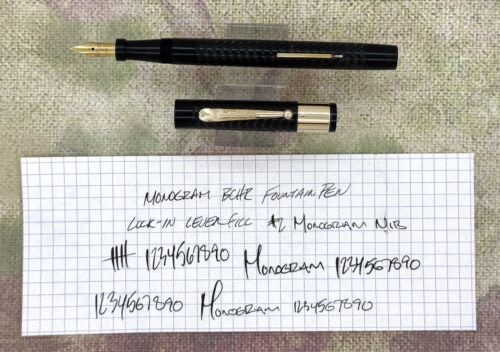 MONOGRAM BCHR FOUNTAIN PEN
LOCK-IN LEVER FILL #2 MONOGRAM NIB
1234567890 MONOGRAM 1234567890
1234567890 MONOGRAM 1234567890